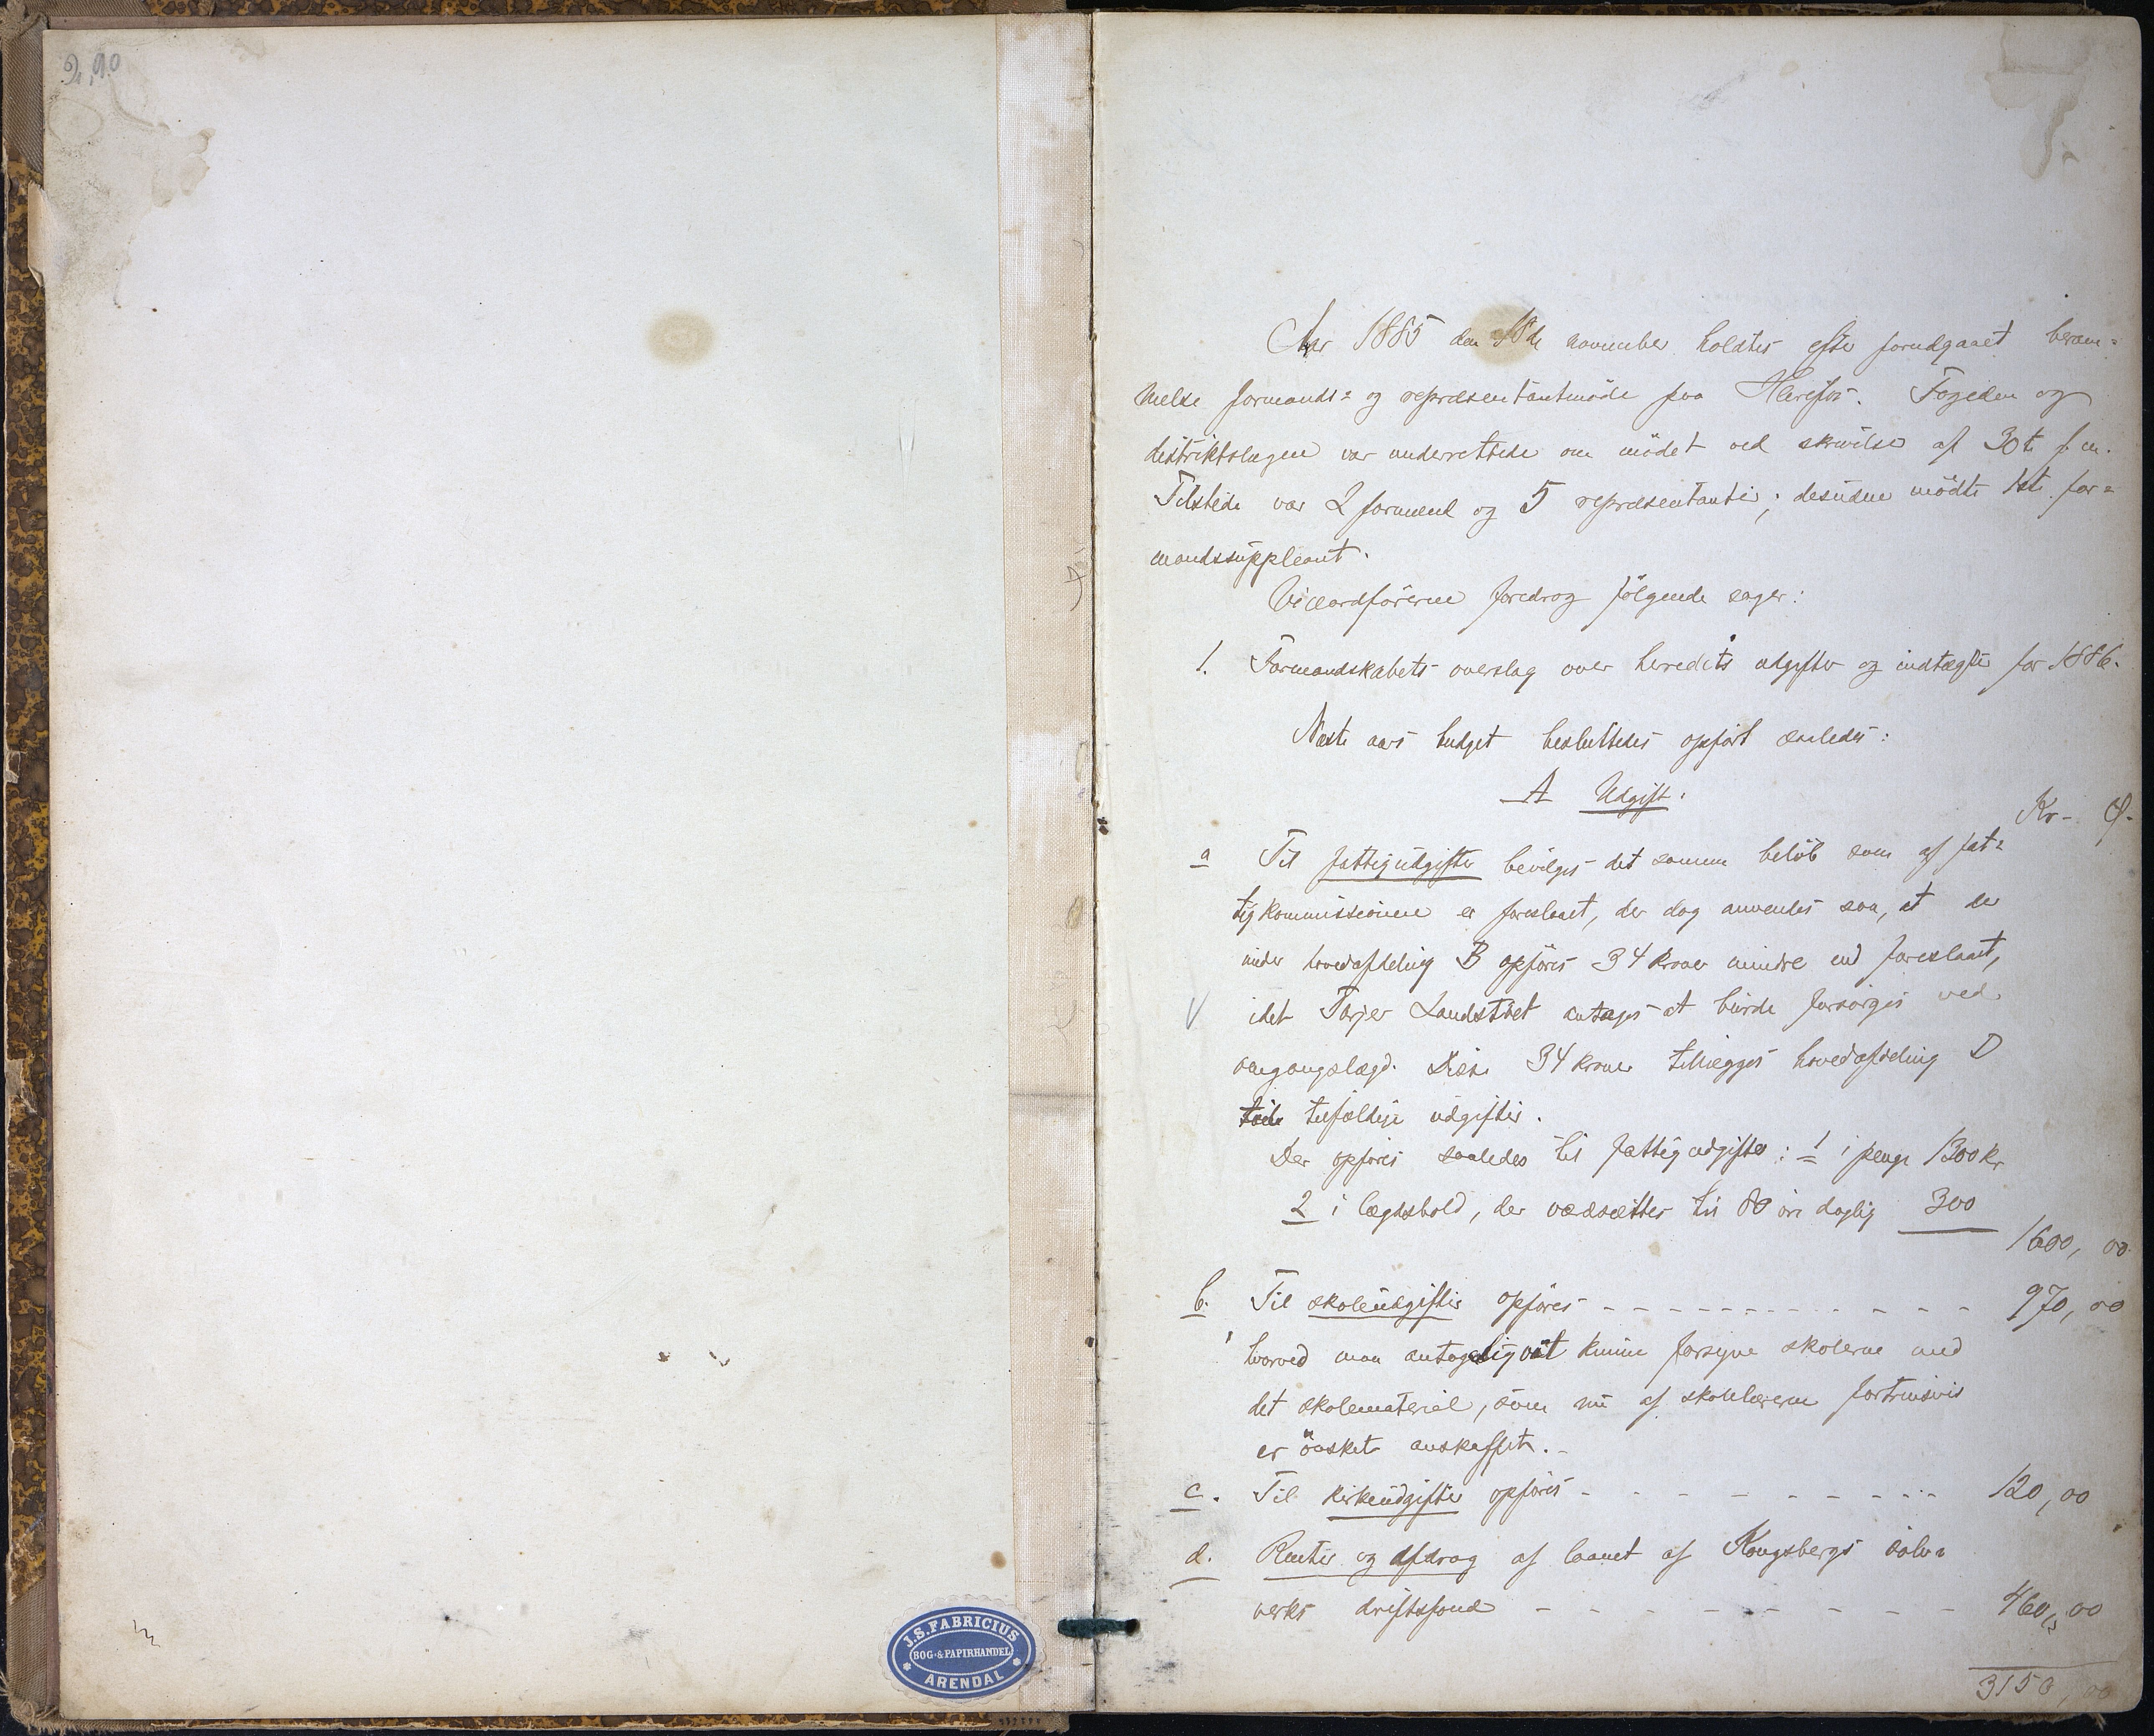 2,90
J. S. FABRICIUS
BOG- & PAPIRHANDEL
ARENDAL
Aar 1885 den 18de november holdtes efter forudgaaet beram=
melse formands= og repræsentantmöde paa Herefos. Fogden og
distriktslægen var underrettede om mödet ved skrivelse af 30te f. m.
Tilstede var 2 formænd og 5 repræsentanter; desuden mödte 1ste for=
mandssuppleant.
Viceordföreren foredrog fölgende sager:
1. Formandskabets overslag over herredets udgifter og indtægter for 1886.
Næste aars budget besluttedes opfört saaledes:
A Udgift.
Kr. Ø.
a Til fattigudgifter bevilges det samme belöb som af fat=
tigkommissionen er foreslaaet, der dog anvendes saa, at der
under hovedafdeling B opföres 34 kroner mindre end foreslaaet,
idet Torjer Landstöet antages at burde forsörges ved
omgangslægd. Disse 34 kroner tillægges hovedafdeling D
tilfældige udgifter.
Der opföres saaledes til fattigudgifter: 1 i penge 1300 kr
2 i lægdshold, der værdsættes til 80 öre daglig 300
1600,00
b. Til skoleudgifter opföres - - - - - - - - - - - - 970,00
hvorved man antagelig vil kunne forsyne skolerne med
det skolemateriel, som nu af skolelærerne fortrinsvis
er önsket anskaffet. -
c. Til kirkeudgifter opföres - - - - - - - - - - 120,00
d. Renter og afdrag af laanet af Kongsbergs sölv=
verks driftsfond - - - - - - - - - 460,00
3150,00